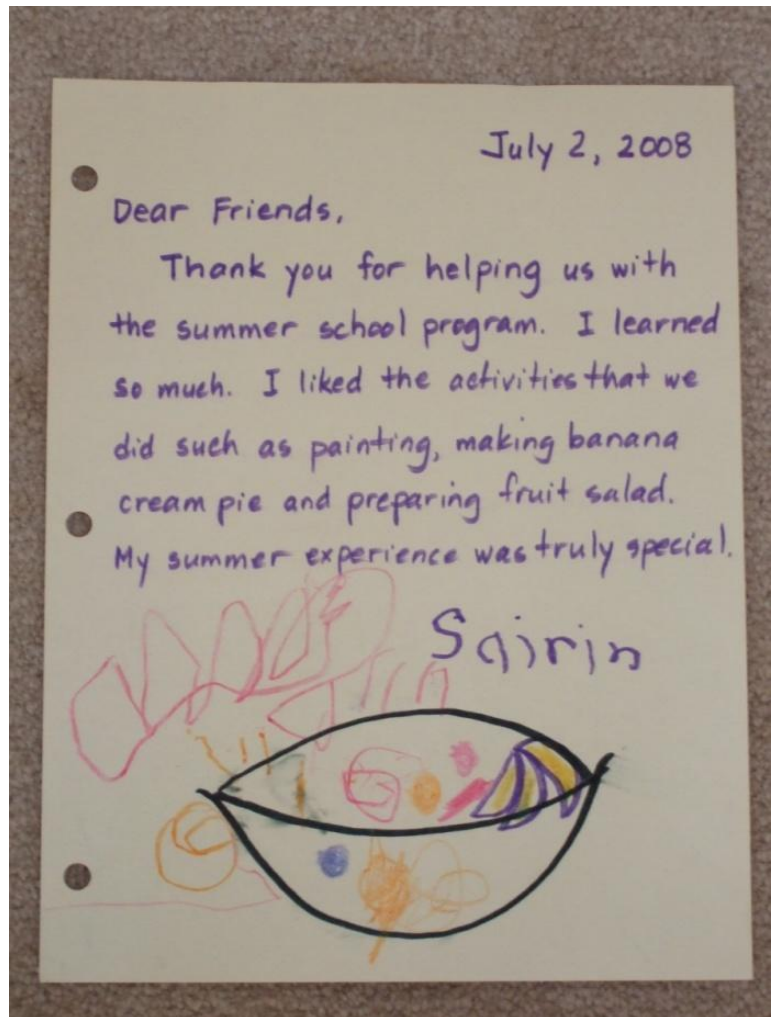 July 2, 2008
Dear Friends,
Thank you for helping us with
the summer school program. I learned
so much. I liked the activities that we
did such as painting, making banana
cream pie and preparing fruit salad.
My summer experience was truly special.
Sairin